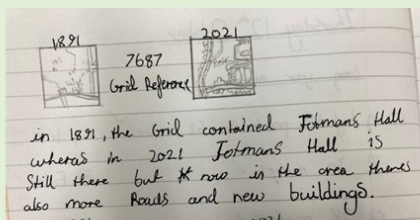 1891
2021
7687
Grid Reference
in 1891, the Grid contained Jotmans Hall
wheras in 2021 Jotmans Hall is
Still there but now in the area theres
also more Roads and new buildings.